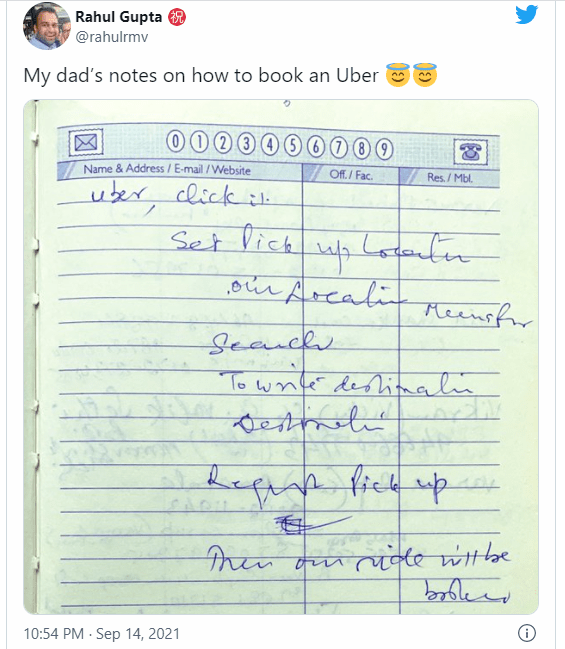 Rahul Gupta ㊗
@rahulrmv
My dad's notes on how to book an Uber 😇😇
0 1 2 3 4 5 6 7 8 9
Name & Address / E-mail / Website Off. / Fac. Res. / Mbl.
uber, click it.
Set Pick up Locatin
our Locatin
Search
To write destinatin
Destinatin
Request Pick up
Then our ride will be
booked
10:54 PM · Sep 14, 2021